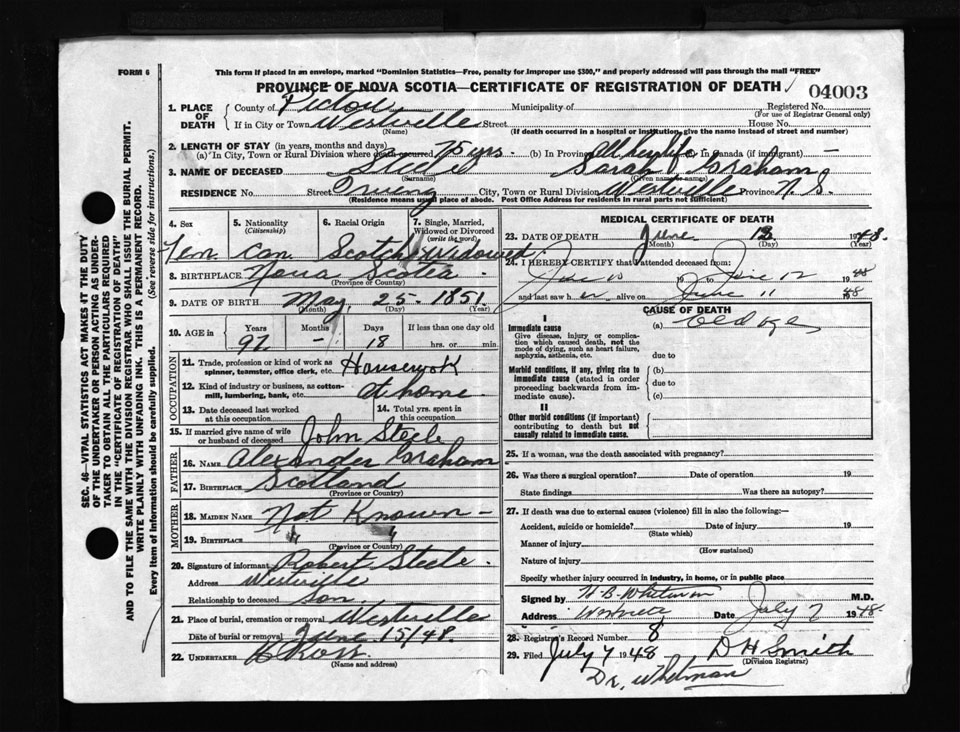 FORM 6
This form if placed in an envelope, marked "Dominion Statistics—Free, penalty for improper use $300," and properly addressed will pass through the mail "FREE"
PROVINCE OF NOVA SCOTIA—CERTIFICATE OF REGISTRATION OF DEATH
04003
1. PLACE OF DEATH County of Pictou Municipality of Registered No.
(For use of Registrar General only)
If in City or Town Westville Street House No.
(Name) (If death occurred in a hospital or institution, give the name instead of street and number)
2. LENGTH OF STAY (in years, months and days)
(a) In City, Town or Rural Division where death occurred 75 yrs. (b) In Province all her life In Canada (if immigrant) —
3. NAME OF DECEASED Steele Sarah Graham
(Surname) (Given name or names)
RESIDENCE No. Street Irving City, Town or Rural Division Westville Province N. S.
(Residence means usual place of abode. Post Office Address for residents in rural parts not sufficient)
4. Sex 5. Nationality (Citizenship) 6. Racial Origin 7. Single, Married, Widowed or Divorced (write the word)
Fem Can. Scotch Widowed
8. BIRTHPLACE Nova Scotia
(Province or Country)
9. DATE OF BIRTH May 25 - 1851
(Month) (Day) (Year)
10. AGE in Years Months Days If less than one day old
97 — 18 hrs. or min.
OCCUPATION
11. Trade, profession or kind of work as spinner, teamster, office clerk, etc. Housework
12. Kind of industry or business, as cotton-mill, lumbering, bank, etc. at home
13. Date deceased last worked at this occupation
14. Total yrs. spent in this occupation
15. If married give name of wife or husband of deceased John Steele
FATHER
16. NAME Alexander Graham
17. BIRTHPLACE Scotland
(Province or Country)
MOTHER
18. MAIDEN NAME Not Known -
19. BIRTHPLACE " "
(Province or Country)
20. Signature of informant Robert Steele
Address Westville
Relationship to deceased Son.
21. Place of burial, cremation or removal Westville
Date of burial or removal June 15/48.
22. UNDERTAKER Ross
(Name and address)
MEDICAL CERTIFICATE OF DEATH
23. DATE OF DEATH June 12 1948.
(Month) (Day) (Year)
24. I HEREBY CERTIFY that I attended deceased from:
10 19 to June 12 1948
and last saw her alive on June 11 1948
CAUSE OF DEATH
I
Immediate cause (a) Old age
Give disease, injury or complication which caused death, not the mode of dying, such as heart failure, asphyxia, asthenia, etc.
due to
Morbid conditions, if any, giving rise to immediate cause (stated in order proceeding backwards from immediate cause). (b)
due to
(c)
II
Other morbid conditions (if important) contributing to death but not causally related to immediate cause.
25. If a woman, was the death associated with pregnancy?
26. Was there a surgical operation? Date of operation 19
State findings Was there an autopsy?
27. If death was due to external causes (violence) fill in also the following:—
Accident, suicide or homicide? Date of injury 19
(State which)
Manner of injury
(How sustained)
Nature of injury
Specify whether injury occurred in industry, in home, or in public place
Signed by H. B. Whitman M.D.
Address Westville Date July 7 1948.
28. Registrar's Record Number 8
29. Filed July 7 1948 D H Smith
(Division Registrar)
Dr. Whitman
SEC. 46—VITAL STATISTICS ACT MAKES IT THE DUTY
OF THE UNDERTAKER OR PERSON ACTING AS UNDER-
TAKER TO OBTAIN ALL THE PARTICULARS REQUIRED
IN THE "CERTIFICATE OF REGISTRATION OF DEATH"
AND TO FILE THE SAME WITH THE DIVISION REGISTRAR WHO SHALL ISSUE THE BURIAL PERMIT.
WRITE PLAINLY WITH UNFADING INK. THIS IS A PERMANENT RECORD.
Every item of Information should be carefully supplied. (See reverse side for instructions.)